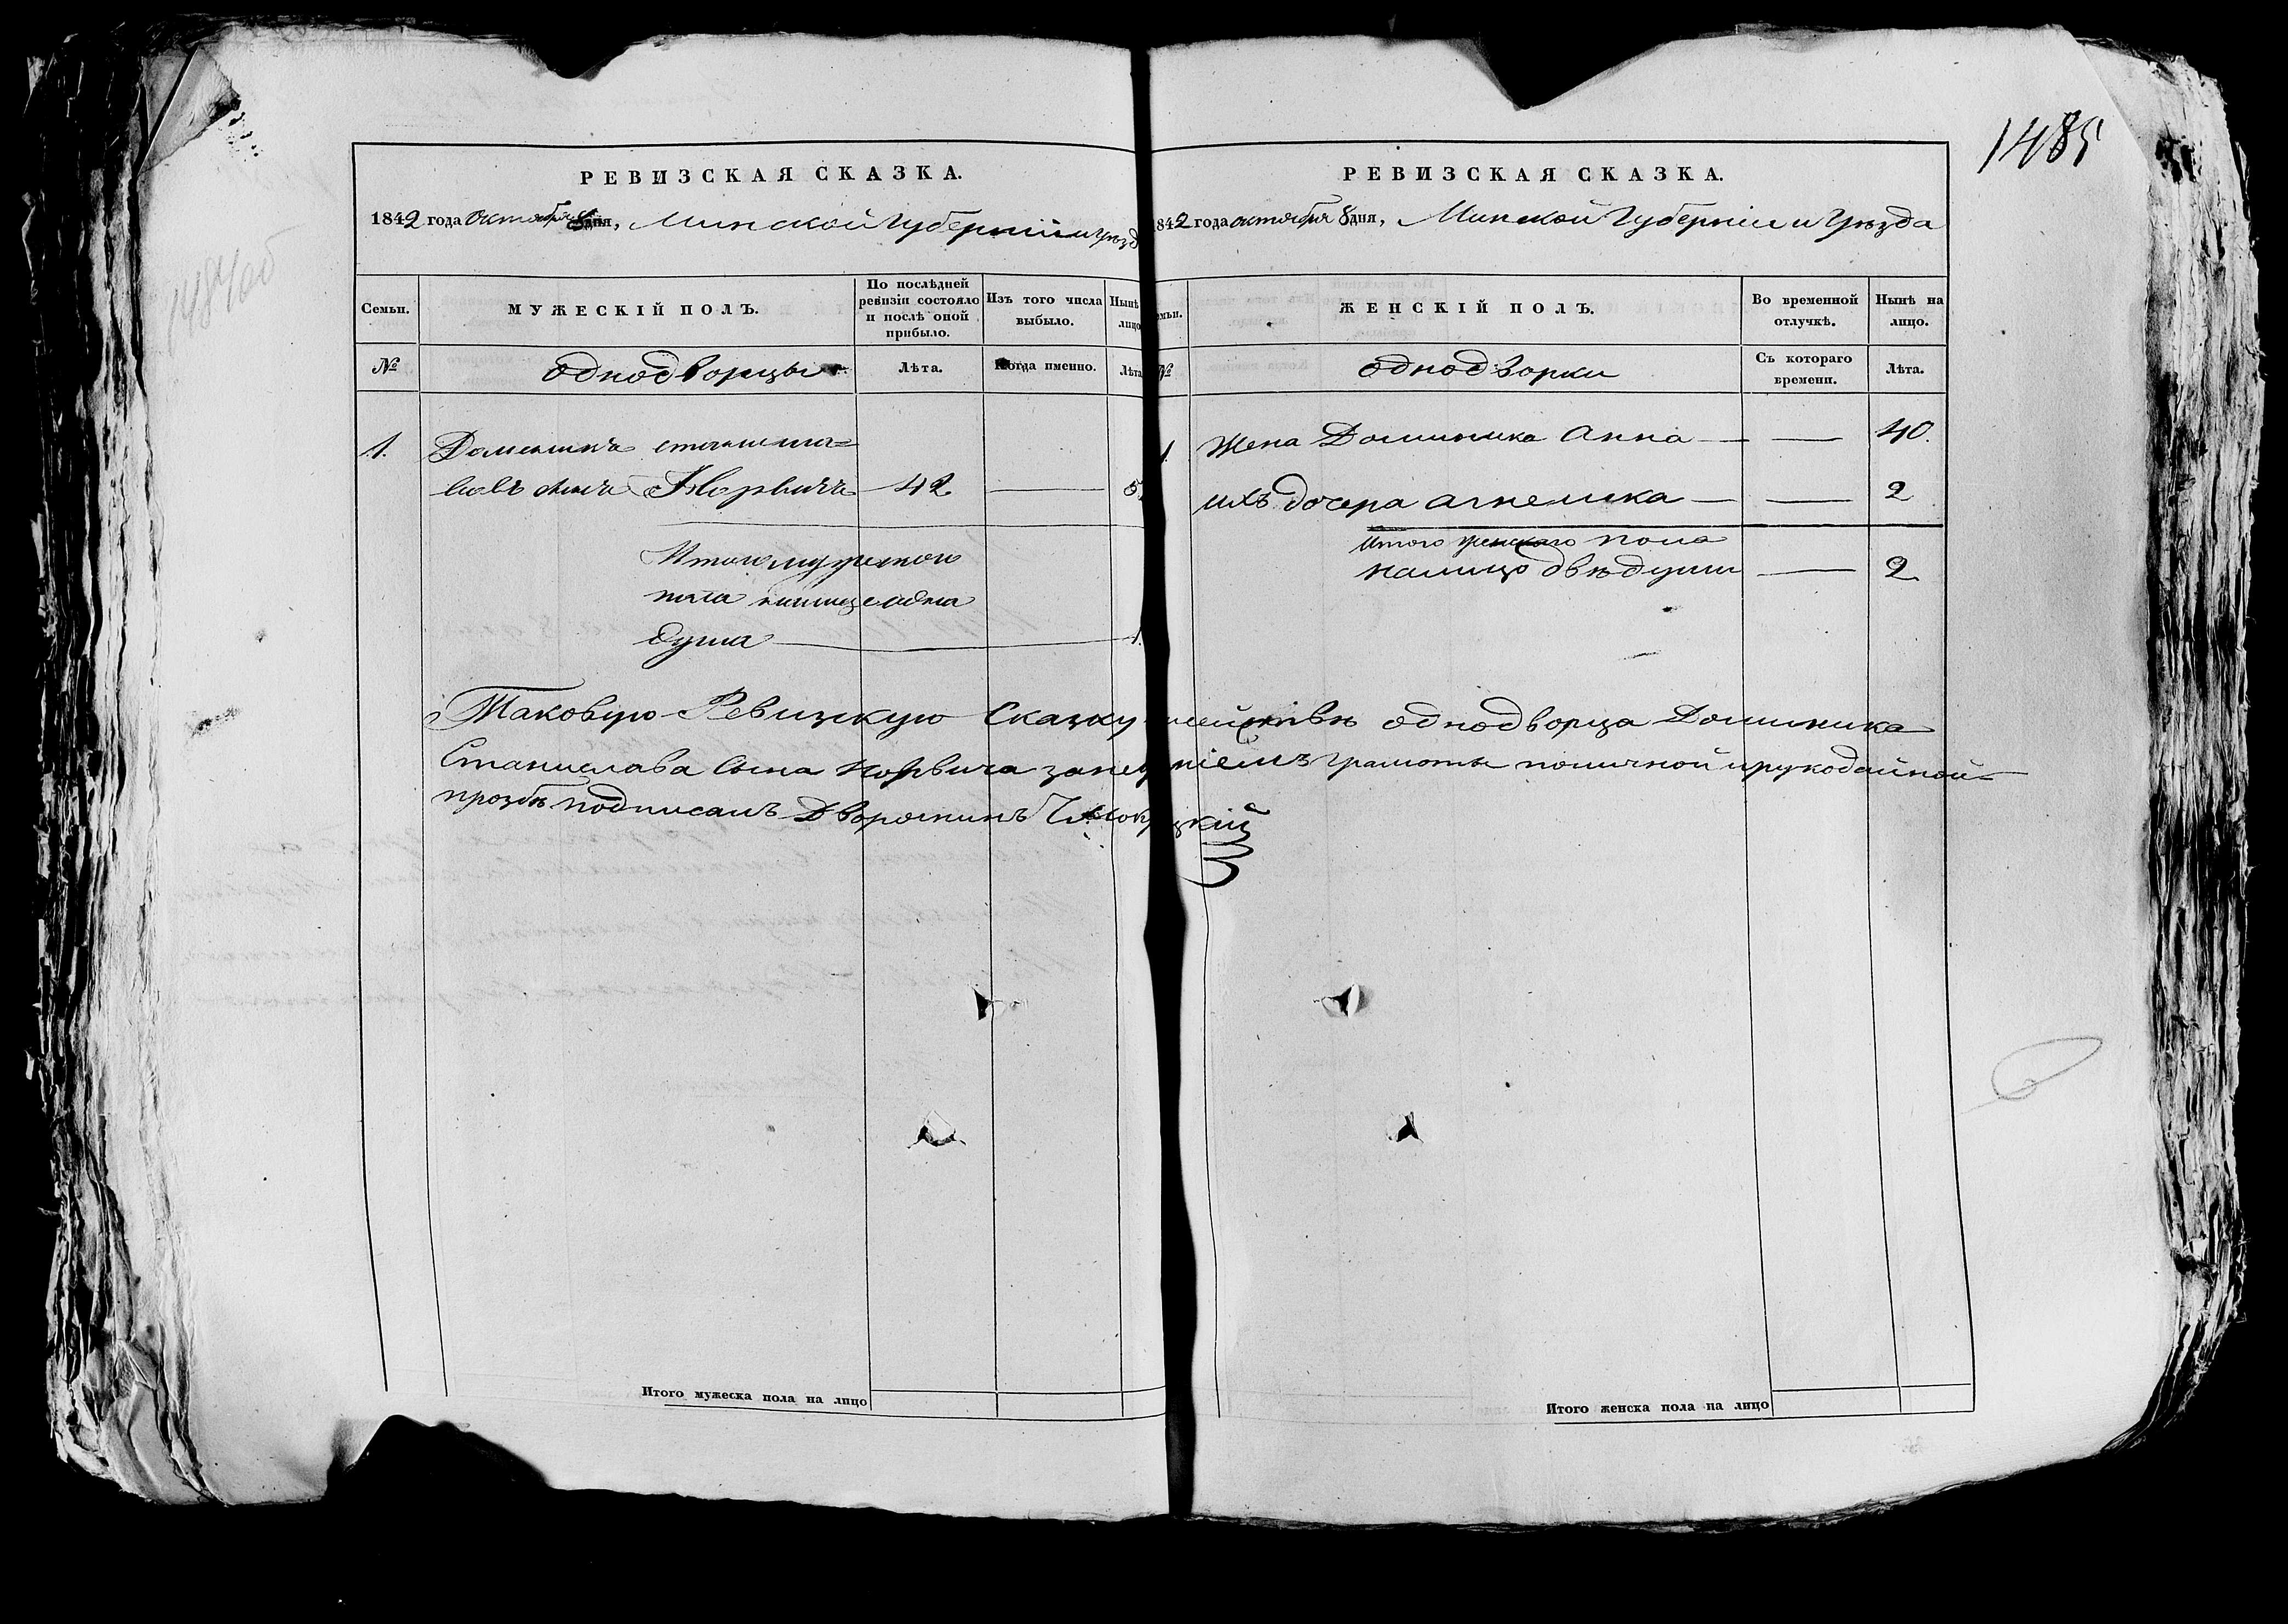 1484об
РЕВИЗСКАЯ СКАЗКА.
1842 года октября 8 дня, Минской Губерніи и Уѣзд
Семьи.
МУЖЕСКІЙ ПОЛЪ.
По послѣдней
ревизіи состояло
и послѣ оной
прибыло.
Изъ того числа
выбыло.
Нынѣ
лицо
№
однодворцы
Лѣта.
Когда именно.
Лѣта
1.
Доминикъ станисла=
вовъ сынъ Норвичъ 42
Итого мужеского
пола налицо одна
душа 1.
Итого мужеска пола на лицо
1485
РЕВИЗСКАЯ СКАЗКА.
1842 года октября 8 дня, Минской Губерніи и Уѣзда
емьи.
ЖЕНСКІЙ ПОЛЪ.
Во временной
отлучкѣ.
Нынѣ на
лицо.
№
однодворки
Съ котораго
времени.
Лѣта.
1. Жена Доминика Анна 40.
ихъ дочера агнешка 2
Итого женскаго пола
налицо двѣ души 2
Таковую Ревизкую Сказку однодворца Доминика
Станислава Сына Норвича грамоты
прозбѣ подписалъ Дворянинъ
Итого женска пола на лицо